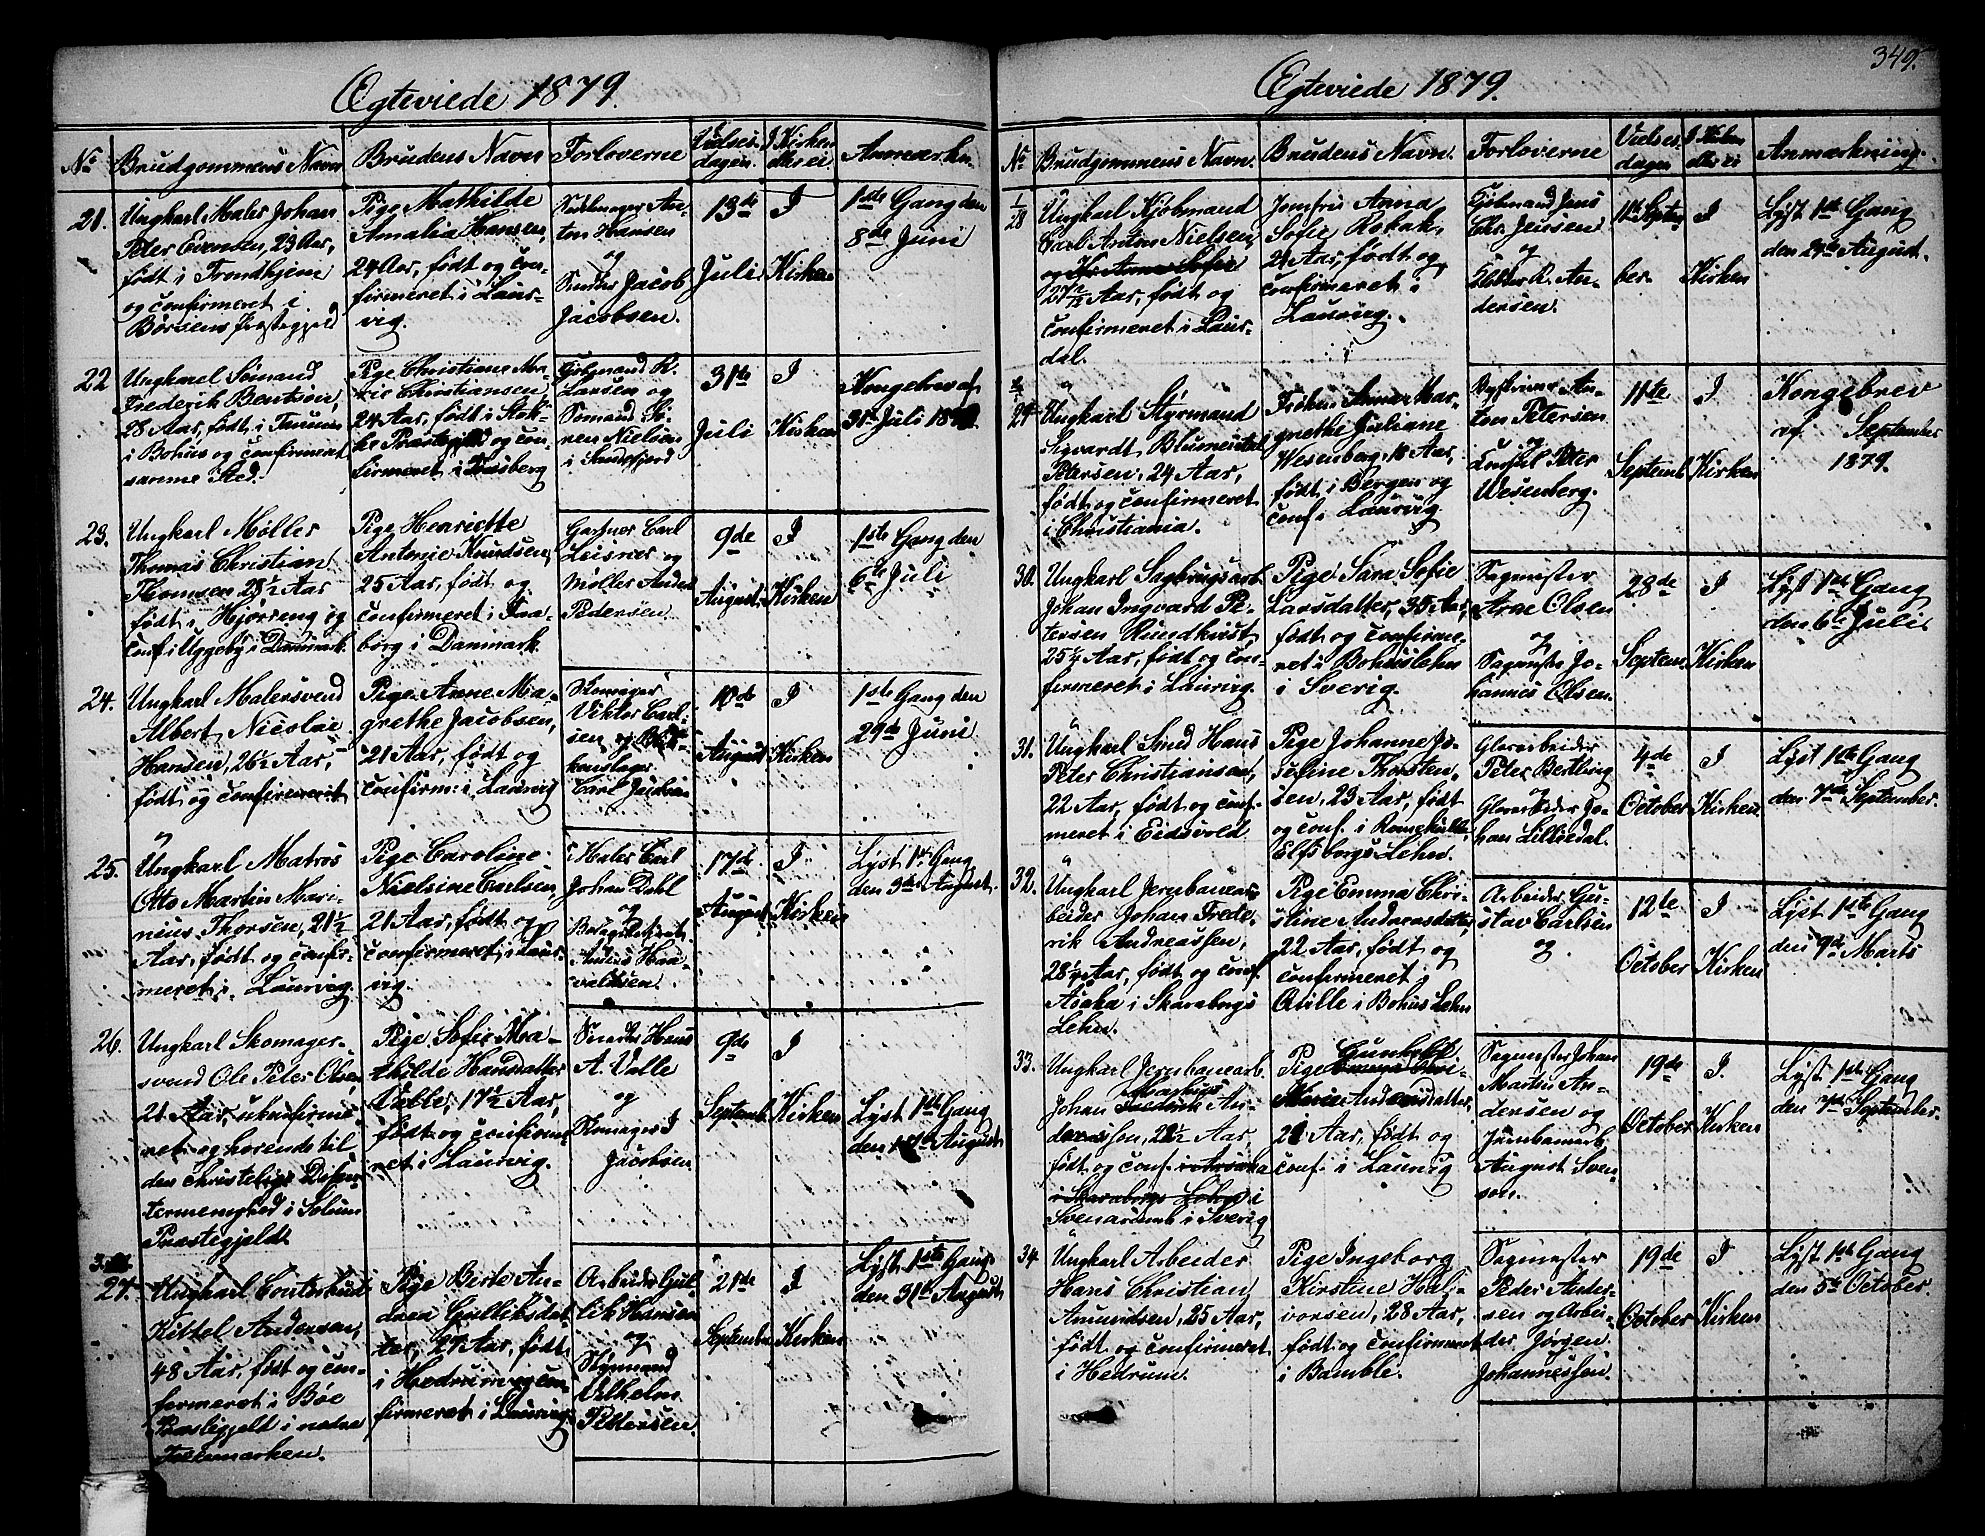 349.
Ægteviede 1879.
No
Brudgommens Navn
Brudens Navn
Forloverne
Vielses-
dagen
I Kirken
eller ei
Anmærkn.
21.
Ungkarl Maler Johan
Peter Evensen, 23 Aar,
født i Trondhjem
og confirmeret i
Børsens Præstegjeld
Pige Mathilde
Amalia Hansen,
24 Aar, født og con-
firmeret i Laur-
vig.
Sadelmager An-
ton Hansen
og
Snedker Jacob
Jacobsen.
13de
Juli
I
Kirken
1ste Gang den
8de Juni
22
Ungkarl Sømand
Frederik Bentsen,
28 Aar, født i Tanum
i Bohus og confirmeret
samme Sted.
Pige Christiane Ma-
rie Christiansen
24 Aar, født i Stok-
ke Præstegjeld og con-
firmeret i Tønsberg
Kjøbmand R.
Larsen og
Sømand Sø-
ren Nielsen
i Sandefjord
31te
Juli
I
Kirken
Kongebrev af
31 Juli 1879.
23.
Ungkarl Møller
Thomas Christian
Thomsen 28½ Aar
født i Hjørreng og
conf. i Uggeby i Danmark.
Pige Henriette
Antonie Knudsen,
25 Aar, født og
confirmeret i Faa-
borg i Danmark.
Gartner Carl
Leisner og
Møller Anders
Pedersen.
9de
August
I
Kirken
1ste Gang den
6te Juli
24.
Ungkarl Malersvend
Albert Nicolai
Hansen, 26½ Aar,
født og confirmeret
Pige Anne Ma-
grethe Jacobsen,
21 Aar, født og
confirm: i Laurvig
Skomager
Viktor Carl-
sen og
Carl
10de
August
I
Kirken
1ste Gang den
29de Juni
25.
Ungkarl Matros
Otto Martin Mari-
nius Thorsen, 21½
Aar, født og confir-
meret i Laurvig.
Pige Caroline
Nielsine Carlsen,
21 Aar, født og
confirmeret i Laur-
vig.
Maler Carl
Johan Dahl
og
17de
August
I
Kirken
Lyst 1ste Gang
den 3die August.
26.
Ungkarl Skomager-
svend Ole Peter Olsen
21 Aar, ukonfirme-
ret og hørende til
den christelige Dissen-
termenighed i Solum
Præstegjeld.
Pige Sofie Ma-
thilde Hansdatter
Valle, 17½ Aar,
født og confirme-
ret i Laurvig.
Snedker Hans
A. Valle
og
Skomager I
Jacobsen
9de
Septemb.
I
Kirken
Lyst 1ste Gang
den August
27.
Ungkarl
Kittel Andersen,
48 Aar, født og con-
fermeret i Bøe
Præstegjeld i nedre
Telemarken.
Pige Berte An-
drea Gulliksdat-
ter, 27 Aar, født
i Hedrum og con-
firmeret i Laurvig.
Arbeider Gul-
lik Hansen
og
Styrmand
Vilhelm
Pettersen.
21de
Septembe
I
Kirken
Lyst 1ste Gang
den 31te August
Ægteviede 1879.
No
Brudgommens Navn.
Brudens Navn.
Forloverne
Vielses-
dagen
I Kirken
eller ei
Anmærkning.
28
Ungkarl Kjøbmand
Carl Anton Nielsen,
27 Aar, født og
confirmeret i Laur-
dal.
Jomfru Anna
Sofie Rokak,
21 Aar, født og
confirmeret i
Laurvig.
Kjøbmand Jens
Chr. Jenssen
og
R. An-
dersen.
Septem-
ber.
I
Kirken
Lyst 1ste Gang
den 24de August.
29
Ungkarl Styrmand
Sigvardt Blumenthal
Petersen, 24 Aar,
født og confirmeret
i Christiania.
Frøken Anna Mar-
grethe Juliane
Wesenberg, 18 Aar,
født i Bergen og
conf. i Laurvig.
An-
ton Petersen
og
Consul Peter
Wesenberg.
11te
Septemb.
I
Kirken
Kongebrev
af September
1879.
30.
Ungkarl Sagbrugsarb.
Johan Ingvard Pe-
tersen Rundkvist,
25½ Aar, født og con-
firmeret i Laurvig.
Pige Sara Sofie
Larsdatter, 35 Aar,
født og confirme-
ret i Bohuslehn
i Sverig.
Sagmester
Arne Olsen
og
Sagmester Jo-
hannes Olsen.
28de
Septem.
I
Kirken
Lyst 1ste Gang
den 6te Juli
31.
Ungkarl Smed Hans
Peter Christiansen,
22 Aar, født og conf-
meret i Eidsvold
Pige Johanne Jo-
sefine Thorsten-
sen, 23 Aar, født
og conf. i
Elfsborgs Lehn.
Glasarbeider
Peter Bertling
og
Glasarbeider Jo-
han Lilliedal.
4de
October
I
Kirken
Lyst 1ste Gang
den 7de September.
32.
Ungkarl Jernbanear-
beider Johan Frede-
rik Andreassen,
28½ Aar, født og conf.
Asaka i Skaraborgs
Lehn.
Pige Emma Chri-
stine Andreasdatter,
22 Aar, født og
confirmeret i
Qville i Bohus Lehn
Arbeider Gu-
stav Carlsen
og
12te
October
I
Kirken
Lyst 1ste Gang
den 9de Marts
33.
Ungkarl Jernbanearb.
Johan Frederik An-
dreassen, 22½ Aar,
født og conf. i Asaka
i Skaraborgs Lehn i
i Sverig
Pige
Marie Andersdatter,
21 Aar, født og
conf. i Laurvig
Sagmester Johan
Martin An-
dersen og
Jernbanearb.
August Sven-
son.
19de
October
I.
Kirken
Lyst 1ste Gang
den 7de September.
34
Ungkarl Arbeider
Hans Christian
Amundsen, 25 Aar,
født og confirmeret
i Hedrum.
Pige Ingeborg
Kirstine Hal-
vorsen, 28 Aar,
født og confirmeret
i Bamble.
Sagmester
Peder Ander-
sen og Arbei-
der Jørgen
Johannessen.
19de
October
I
Kirken
Lyst 1ste Gang
den 5te October.